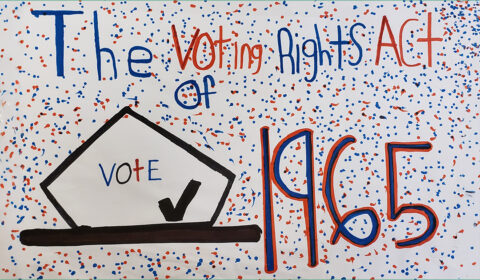 The Voting Rights Act
of
1965
VOTE